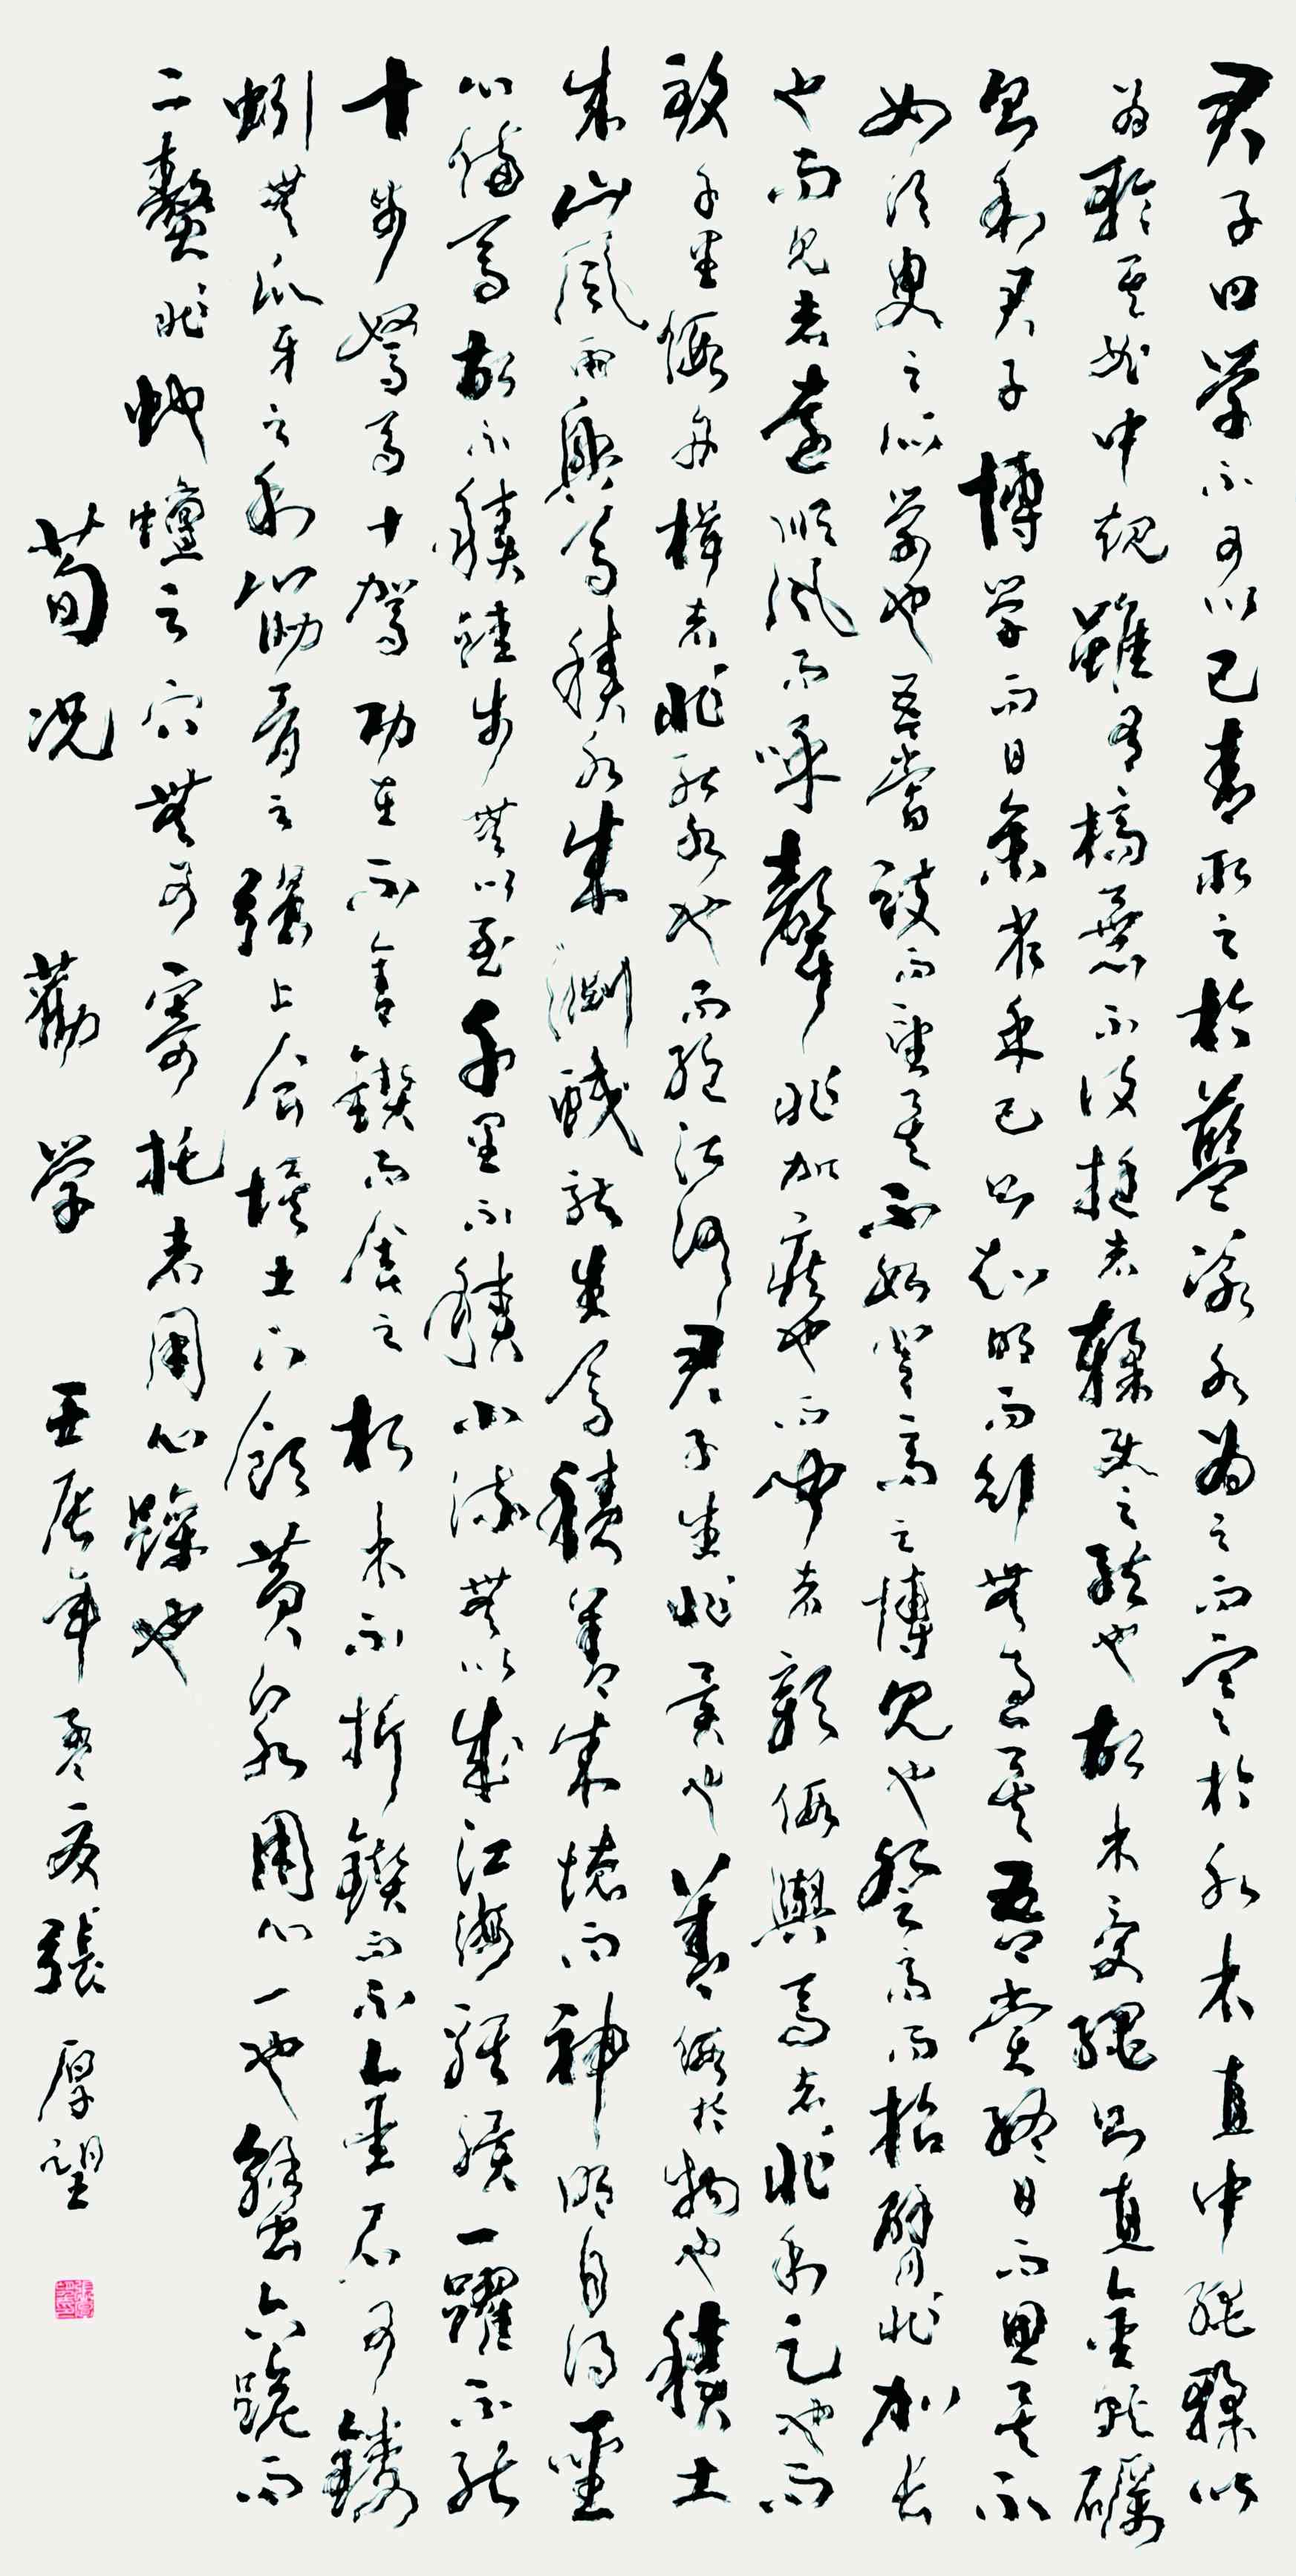 君子曰学不可以已青取之於藍冰水为之而寒於水木直中繩輮以
为輪其曲中規雖有槁暴不復挺者輮使之然也故木受繩則直金就礪
則利君子博学而日參省乎己則知明而行無過矣吾嘗終日而思矣不
如須臾之所學也吾嘗跂而望矣不如登高之博見也登高而招臂非加長
也而見者遠順風而呼聲非加疾也而聞者彰假輿馬者非利足也而
致千里假舟楫者非能水也而絕江河君子生非異也善假於物也積土
成山風雨興焉積水成淵蛟龍生焉積善成德而神明自得聖
心備焉故不積跬步無以至千里不積小流無以成江海騏驥一躍不能
十步駑馬十駕功在不舍鍥而舍之朽木不折鍥而不舍金石可鏤
蚓無爪牙之利筋骨之強上食埃土下飲黃泉用心一也蟹六跪而
二螯非蛇蟺之穴無可寄托者用心躁也
荀況 勸学 壬辰年孟夏張厚望